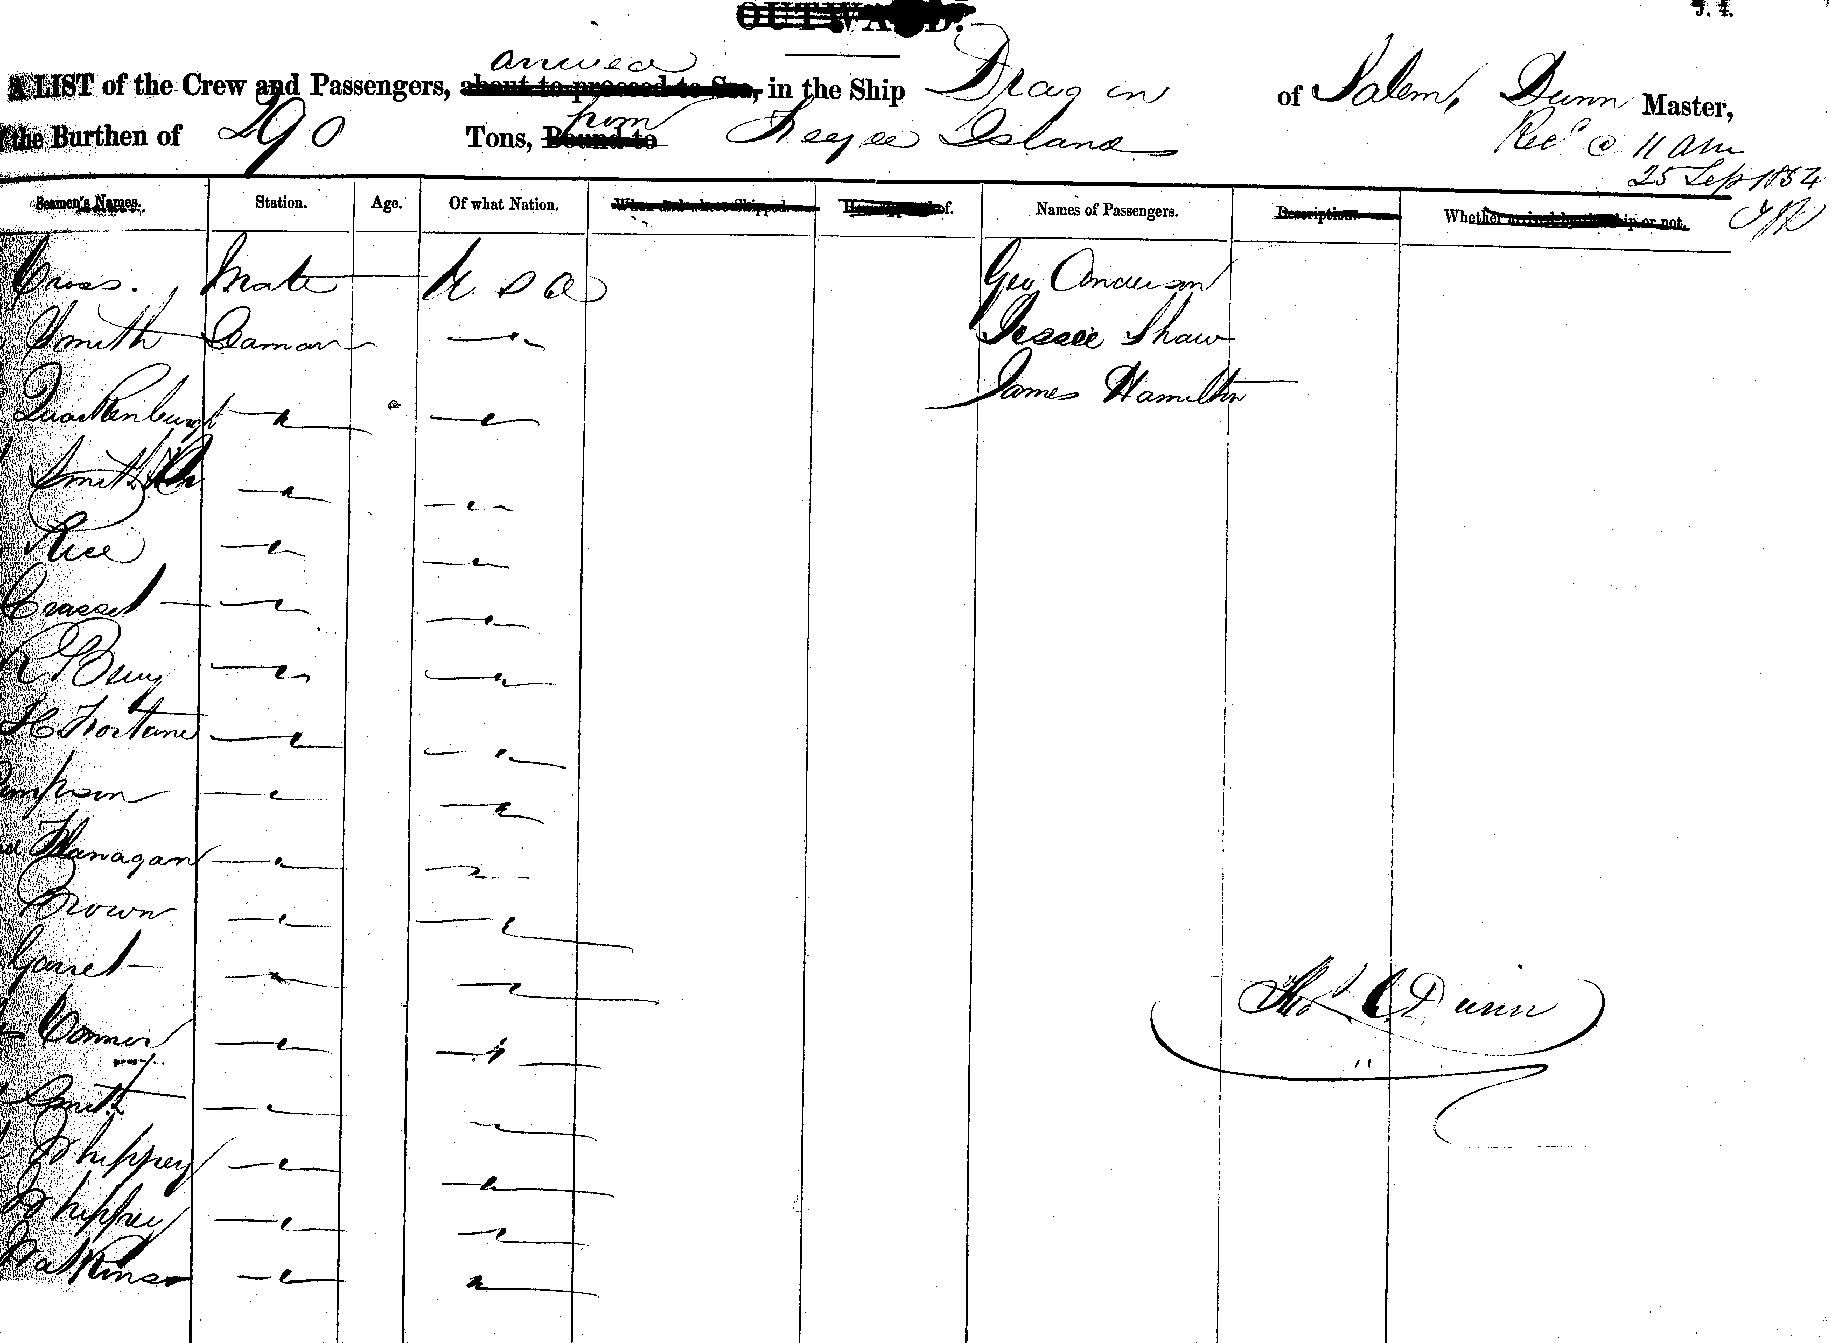 OUTWARD.
J. 4.
arrived
A LIST of the Crew and Passengers, about to proceed to Sea, in the Ship Dragon of Salem, Dunn Master,
from
the Burthen of 290 Tons, Bound to Feejee Islands
Recd @ 11 am
25 Sep 1854
Seamen's Names. Station. Age. Of what Nation. When and where Shipped. of. Names of Passengers. Description. Whether arrived by this ship or not.
Cross. Mate U S A Geo Anderson
Smith Seaman " Jessee Shaw
Quackenburgh " " James Hamilton
Smith " "
Rice " "
Crasset " "
Berry " "
" "
impson " "
Flanagan " "
Brown " "
Garret " "
Connor " "
Smith " "
Whippey " "
Whippey " "
Watkins " "
Thos C Dunn